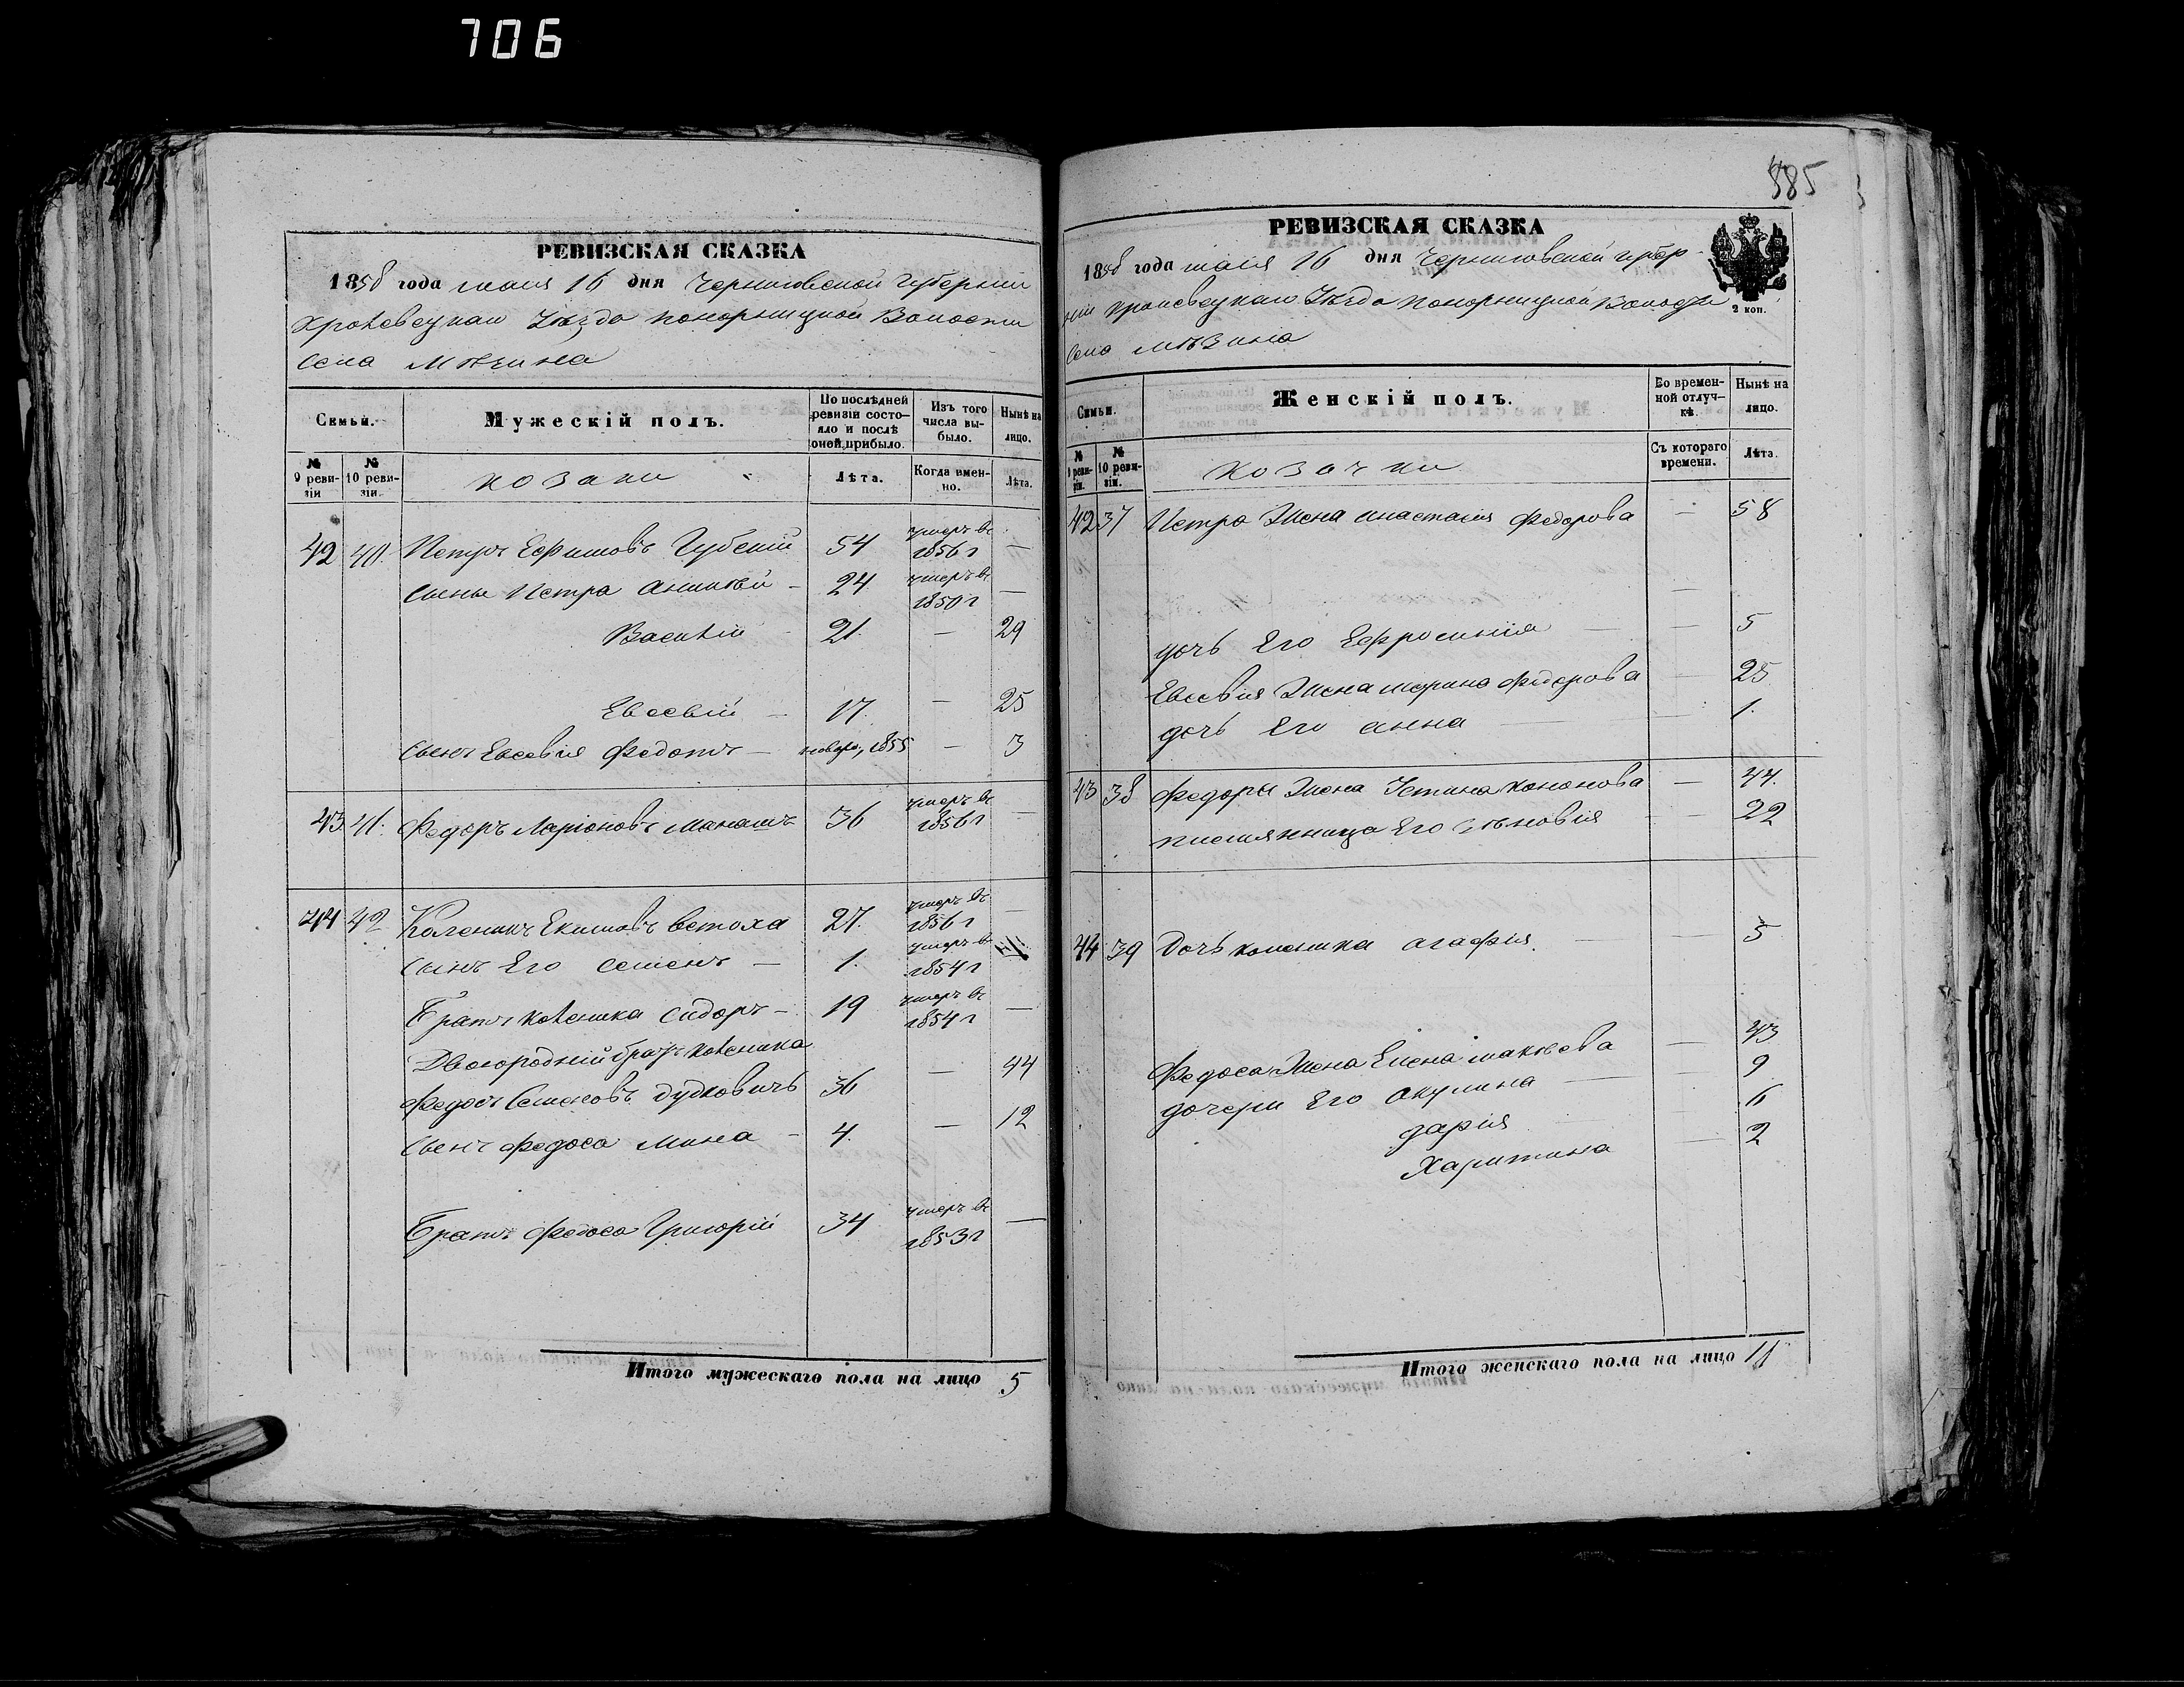 706
РЕВИЗСКАЯ СКАЗКА
1858 года маия 16 дня Черниговской Губерніи
Кролевецкаго Уѣзда Понорницкой Волости
Села Мѣзина
Семьи. Мужескій полъ. По послѣдней ревизіи состояло и послѣ оной прибыло. Изъ того числа выбыло. Нынѣ на лицо.
№ 9 ревизіи № 10 ревизіи. козаки Лѣта. Когда именно. Лѣта.
42 40. Петръ Ефимовъ Губскій 54 умеръ въ 1856 г —
Сыны Петра Аникѣй — 24 умеръ въ 1850 г —
Василій 21. — 29
Евсевій — 17. — 25
Сынъ Евсевія Федотъ — новоро, 1855 — 3
43 41. Федоръ Ларіоновъ 36 умеръ въ 1856 г —
44 42 Коленикъ Екимовъ Ветоха 27. умеръ въ 1856 г —
Сынъ Его Семенъ — 1. умеръ въ 1854 г
Братъ Коленика Сидоръ — 19 умеръ въ 1854 г —
Двоюродній братъ Коленика
Федосъ Семеновъ Дудковичъ 36 — 44
Сынъ Федоса Мина — 4. — 12
Братъ Федоса Григорій 34 умеръ въ 1853 г —
Итого мужескаго пола на лицо 5
885
РЕВИЗСКАЯ СКАЗКА
1858 года маия 16 дня Черниговской губер-
ніи Кролевецкаго Уѣзда Понорницкой Волости
2 коп.
Села Мѣзина
Семьи. Женскій полъ. Во временной отлучкѣ. Нынѣ на лицо.
№ 9 ревизіи. № 10 ревизіи. козачки Съ котораго времени. Лѣта.
42 37 Петра Жена Анастасія Федорова — 58
дочь Его Ефросинія — — 5
Евсевія Жена Марина Федорова — 25
дочь Его Анна — — 1.
43 38 Федора Жена Устина Кононова — 44.
племянница Его Зѣновія — 22
44 39 Дочь Коленика Агафія. — — 5
Федоса Жена Елена Маковева — 43
дочери Его Акулина — — 9
Дарія — 6
Харитина — 2
Итого женскаго пола на лицо 11